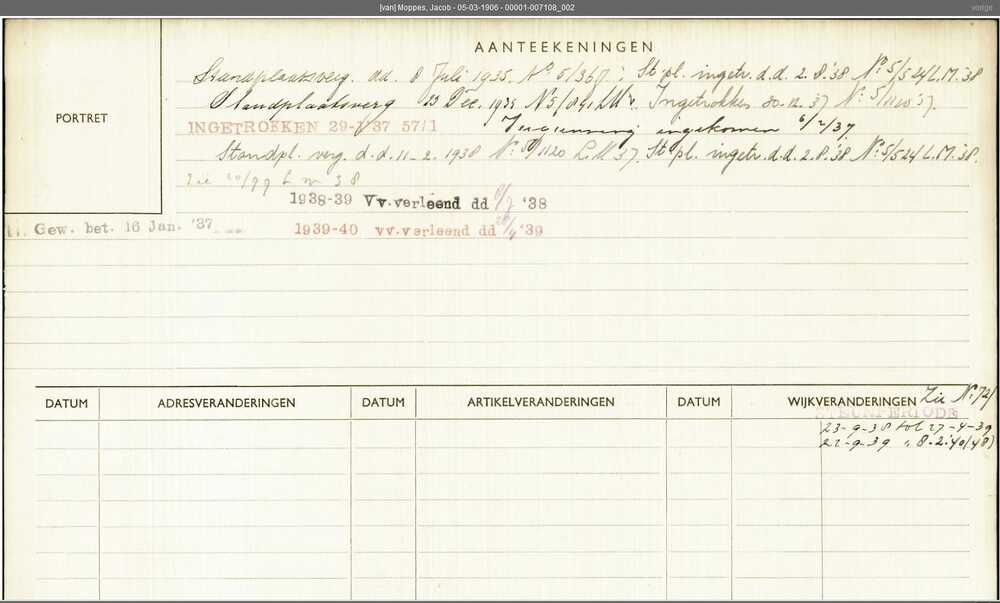 [van] Moppes, Jacob - 05-03-1906 - 00001-007108_002
vorige
AANTEEKENINGEN
PORTRET
Standplaatsverg. dd. 8 Juli 1935. No 5/367; St.pl. ingetr. d.d. 2.8.'38 No. 5/524 L.M.'38
Standplaatsverg 23 Dec. 1935 Ingetrokken 30-12.37 No. 5/1120 '37.
INGETROKKEN 29-1/37 57/1
Vergunning ingekomen 6/2/37
Standpl. verg. d.d. 11-2.1938 No. 5/1120 L.M 37. St.pl. ingetr. d.d. 2.8.'38 No. 5/524 L.M.'38.
Zie 20/99 L M 38
1938-39 Vv.verleend dd /9 '38
Gew. bet. 16 Jan. '37
1939-40 vv.verleend dd /4 '39
DATUM ADRESVERANDERINGEN DATUM ARTIKELVERANDERINGEN DATUM WIJKVERANDERINGEN Zie No. 72/
STEUNPERIODE
23-9-38 tot 27-4-39
22-9-39 " 8-2-40 (48)